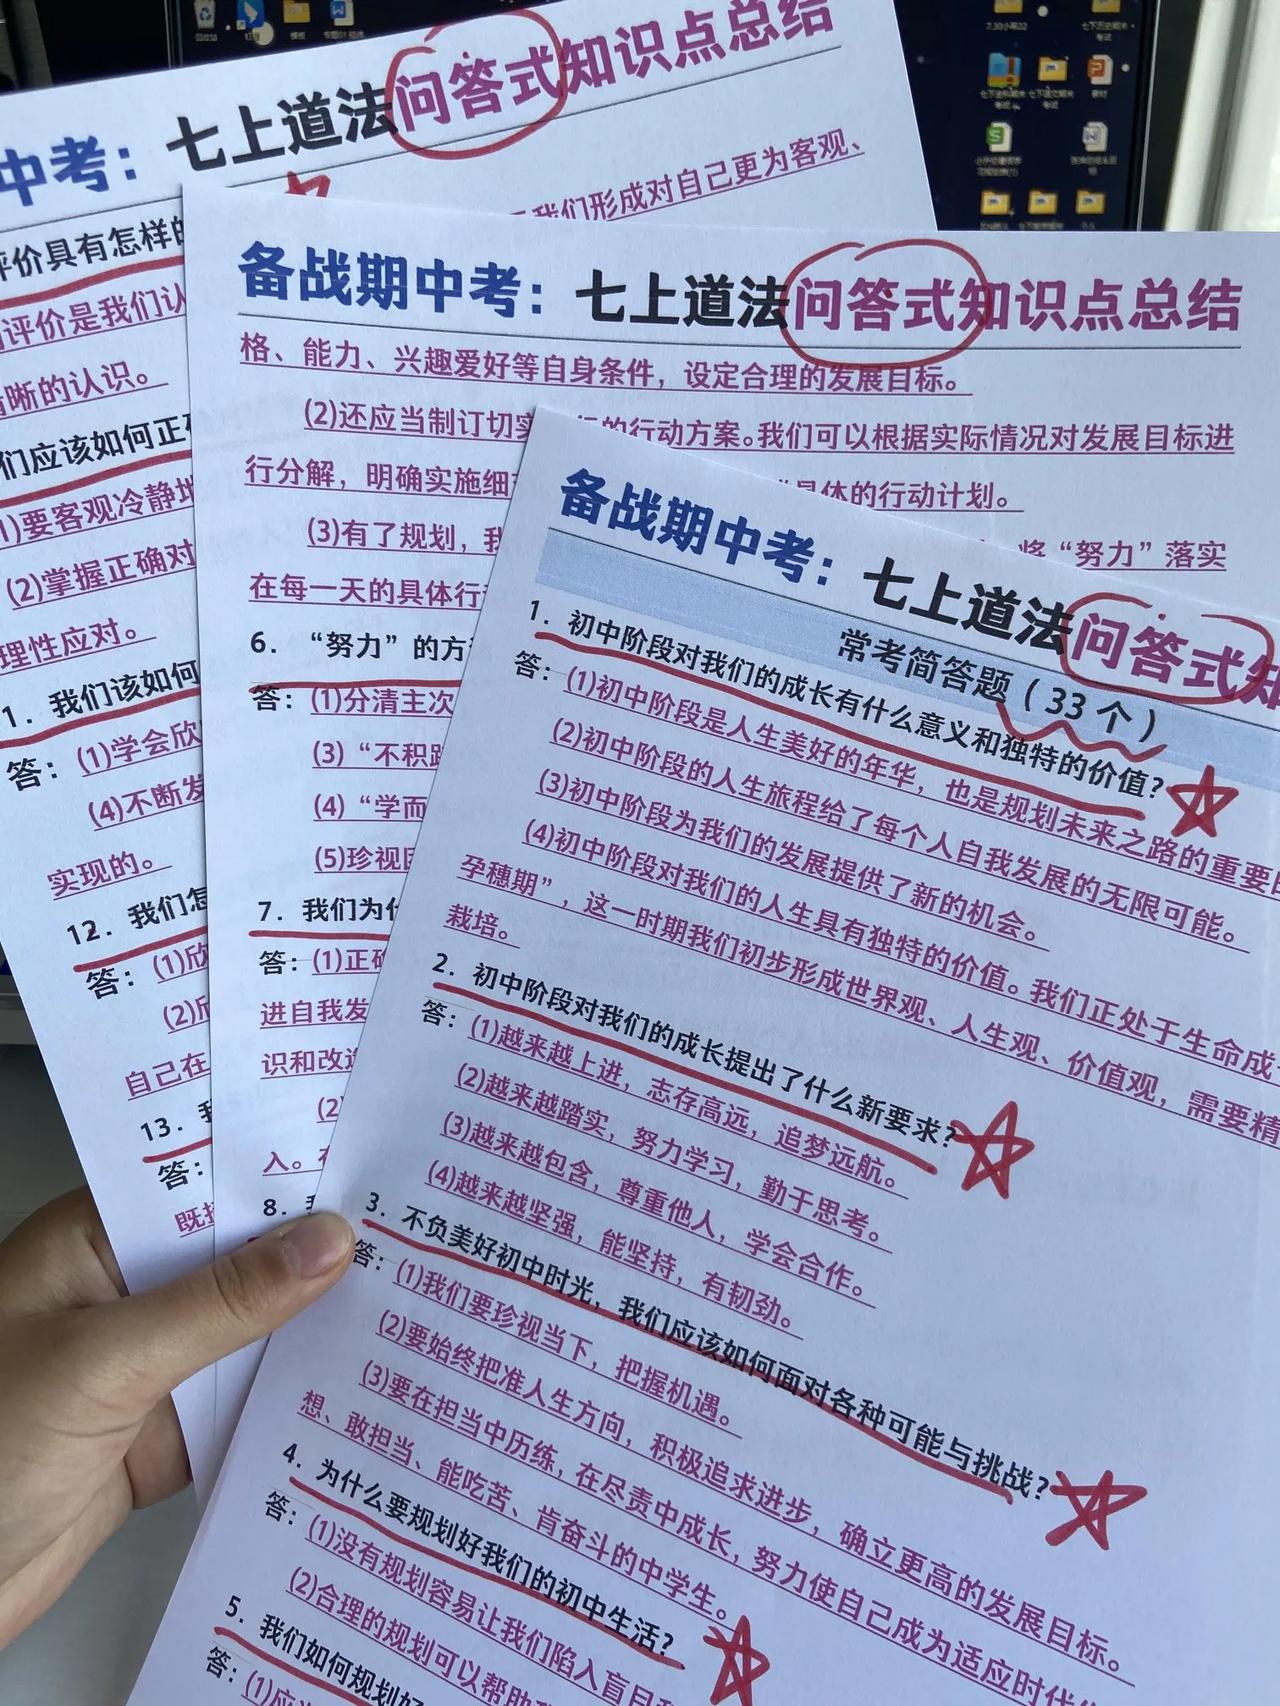 中考：七上道法问答式知识点总结
我们形成对自己更为客观、
评价具有怎样的
评价是我们认
清晰的认识。
们应该如何正
(1)要客观冷静地
(2)掌握正确对
理性应对。
1. 我们该如何
答：(1)学会欣
(4)不断发
实现的。
12. 我们怎
答：(1)欣
(2)欣
自己在
13. 我
答：
既
备战期中考：七上道法问答式知识点总结
格、能力、兴趣爱好等自身条件，设定合理的发展目标。
(2)还应当制订切实 行的行动方案。我们可以根据实际情况对发展目标进
行分解，明确实施细 具体的行动计划。
(3)有了规划，我 将“努力”落实
在每一天的具体行
6. “努力”的方
答：(1)分清主次
(3)“不积跬
(4)“学而
(5)珍视
7. 我们为什
答：(1)正确
进自我发
识和改造
(2)
入。
8. 我
备战期中考：七上道法问答式知
常考简答题（33个）
1. 初中阶段对我们的成长有什么意义和独特的价值？
答：(1)初中阶段是人生美好的年华，也是规划未来之路的重要
(2)初中阶段的人生旅程给了每个人自我发展的无限可能。
(3)初中阶段为我们的发展提供了新的机会。
(4)初中阶段对我们的人生具有独特的价值。我们正处于生命成
孕穗期”，这一时期我们初步形成世界观、人生观、价值观，需要精
栽培。
2. 初中阶段对我们的成长提出了什么新要求？
答：(1)越来越上进，志存高远，追梦远航。
(2)越来越踏实，努力学习，勤于思考。
(3)越来越包含，尊重他人，学会合作。
(4)越来越坚强，能坚持，有韧劲。
3. 不负美好初中时光，我们应该如何面对各种可能与挑战？
答：(1)我们要珍视当下，把握机遇。
(2)要始终把准人生方向，积极追求进步，确立更高的发展目标。
(3)要在担当中历练，在尽责中成长，努力使自己成为适应时代
想、敢担当、能吃苦、肯奋斗的中学生。
4. 为什么要规划好我们的初中生活？
答：(1)没有规划容易让我们陷入盲目
(2)合理的规划可以帮助
5. 我们如何规划好
答：(1)应